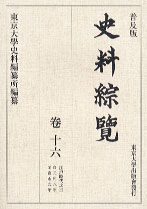 普及版
東京大學史料編纂所編纂
史料綜覽
卷十六
東京大學出版會發行